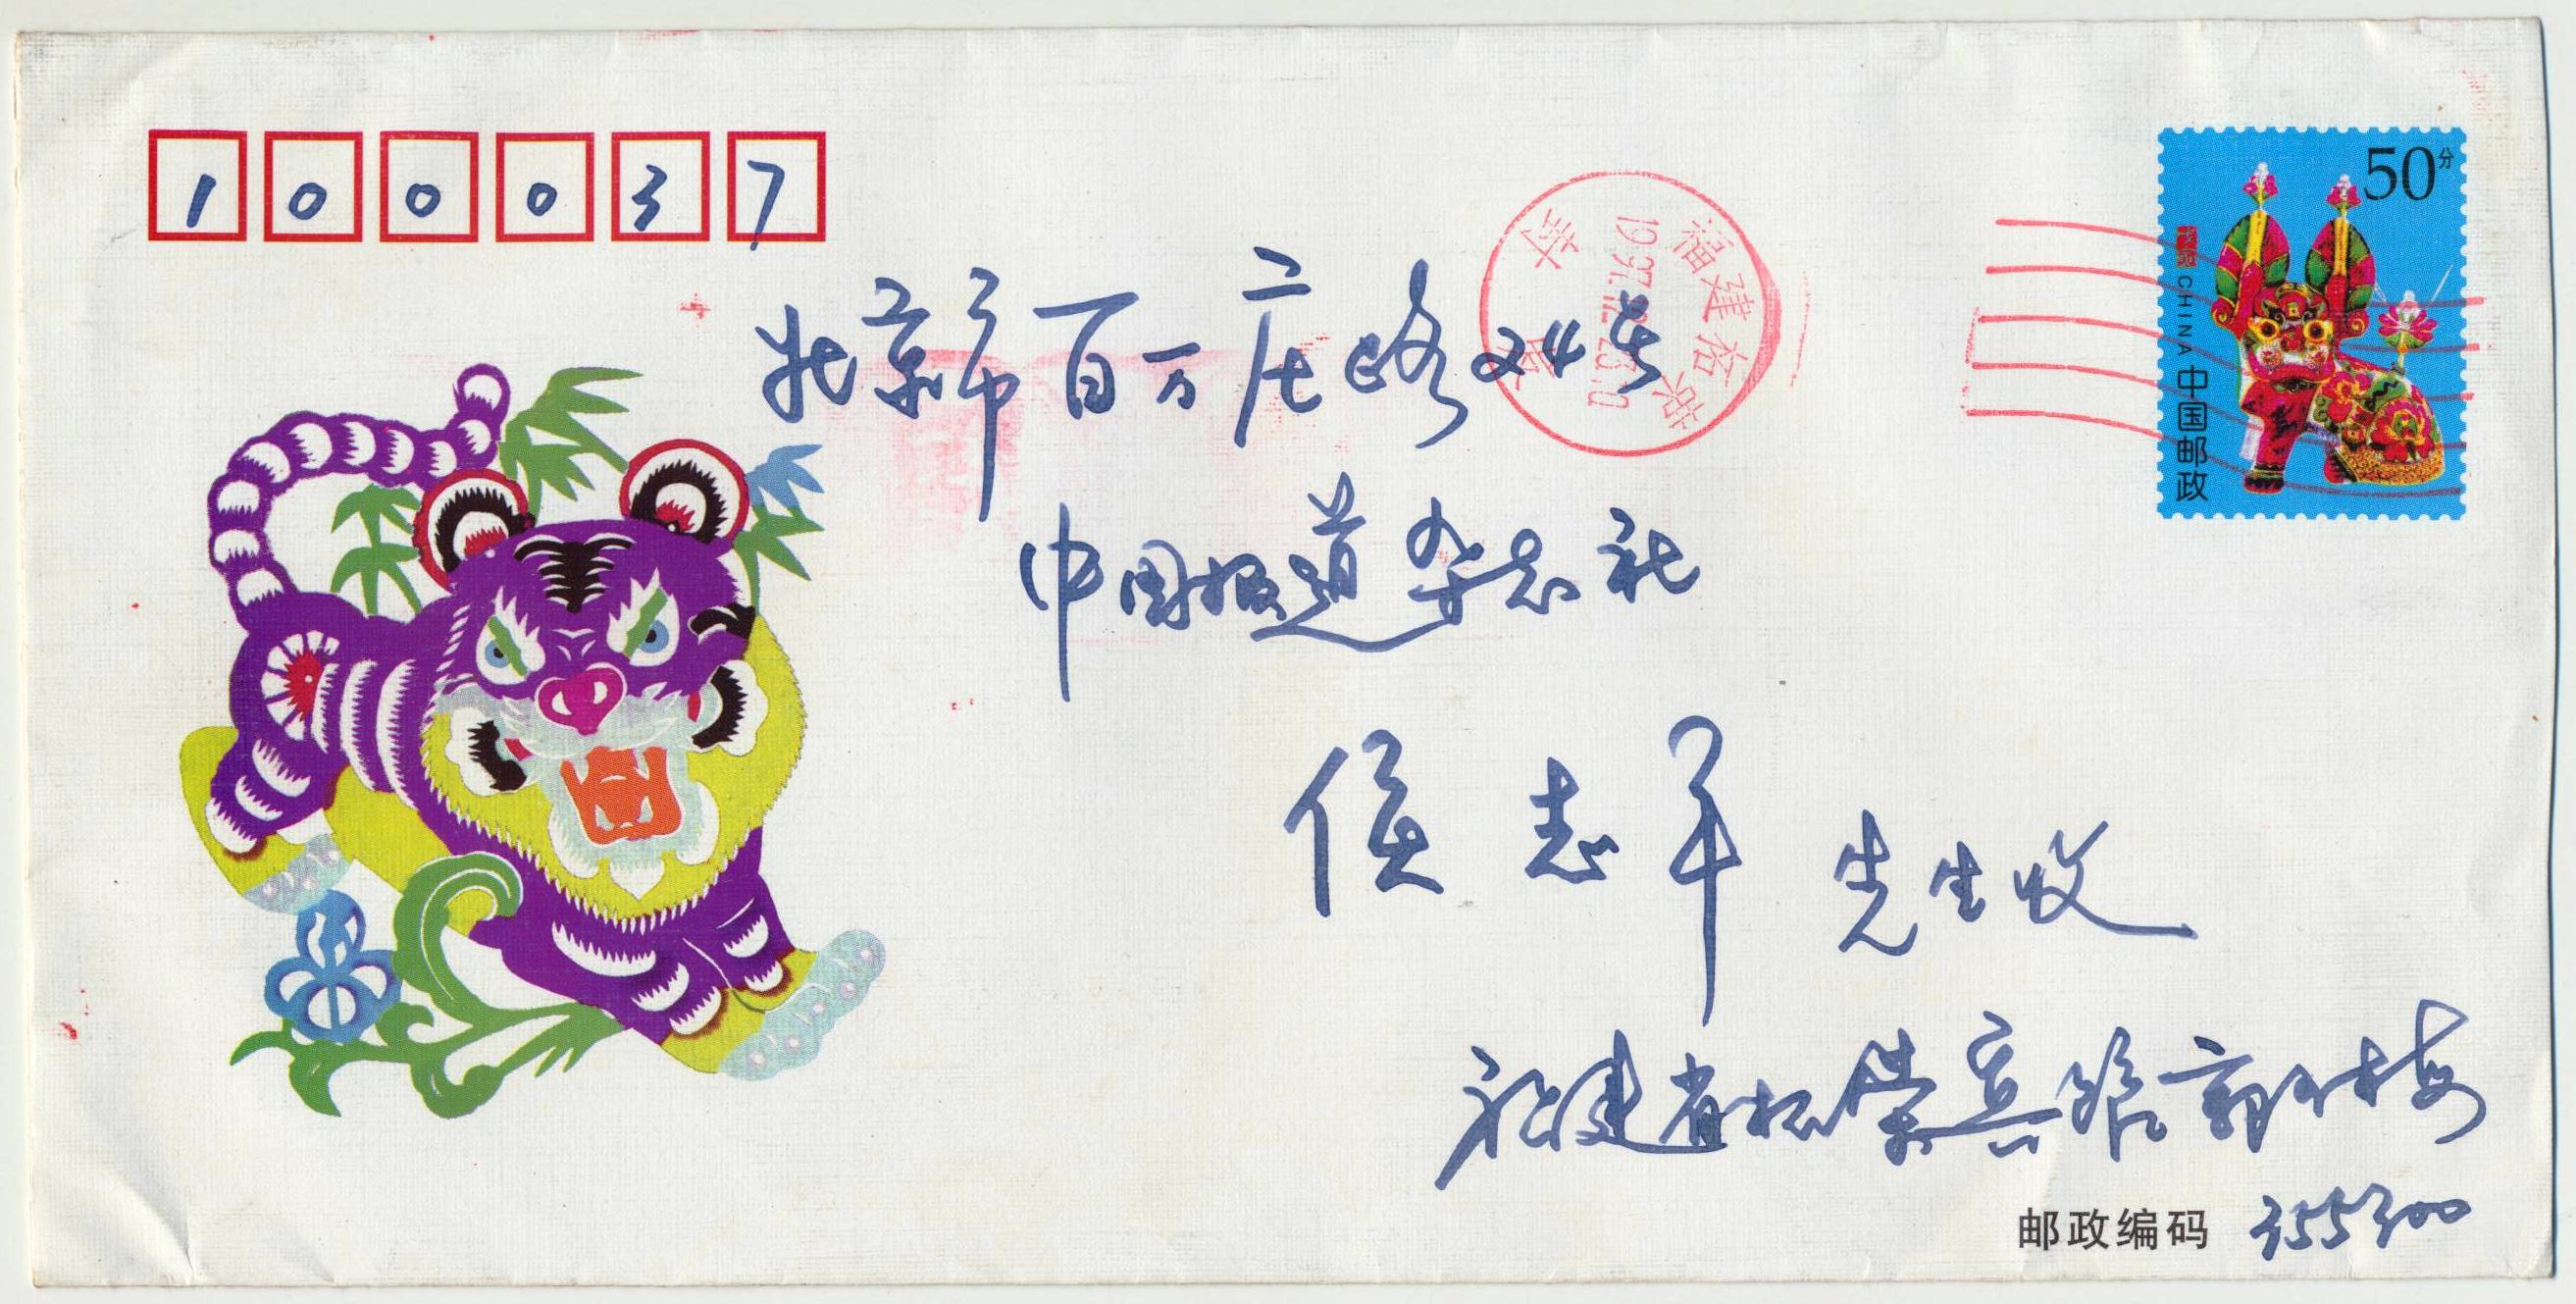 100037
50分
CHINA 中国邮政
福建柘荣
1997.12.23.10
北京市百万庄路24号
中国报道杂志社
侯志平 先生收
福建省柘荣宾馆 郭小梅
邮政编码 355300